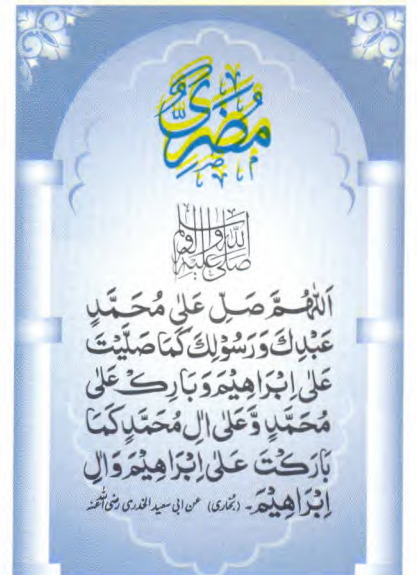 مُضَرِيٌّ
صلی اللہ علیہ وآلہ وسلم
اَللّٰهُمَّ صَلِّ عَلٰی مُحَمَّدٍ
عَبْدِكَ وَرَسُوْلِكَ كَمَا صَلَّيْتَ
عَلٰی اِبْرَاهِيْمَ وَبَارِكْ عَلٰی
مُحَمَّدٍ وَّعَلٰی اٰلِ مُحَمَّدٍ كَمَا
بَارَكْتَ عَلٰی اِبْرَاهِيْمَ وَاٰلِ
اِبْرَاهِيْمَ۔ (بخاری) عن ابی سعید الخدری رضی اللہ عنہ